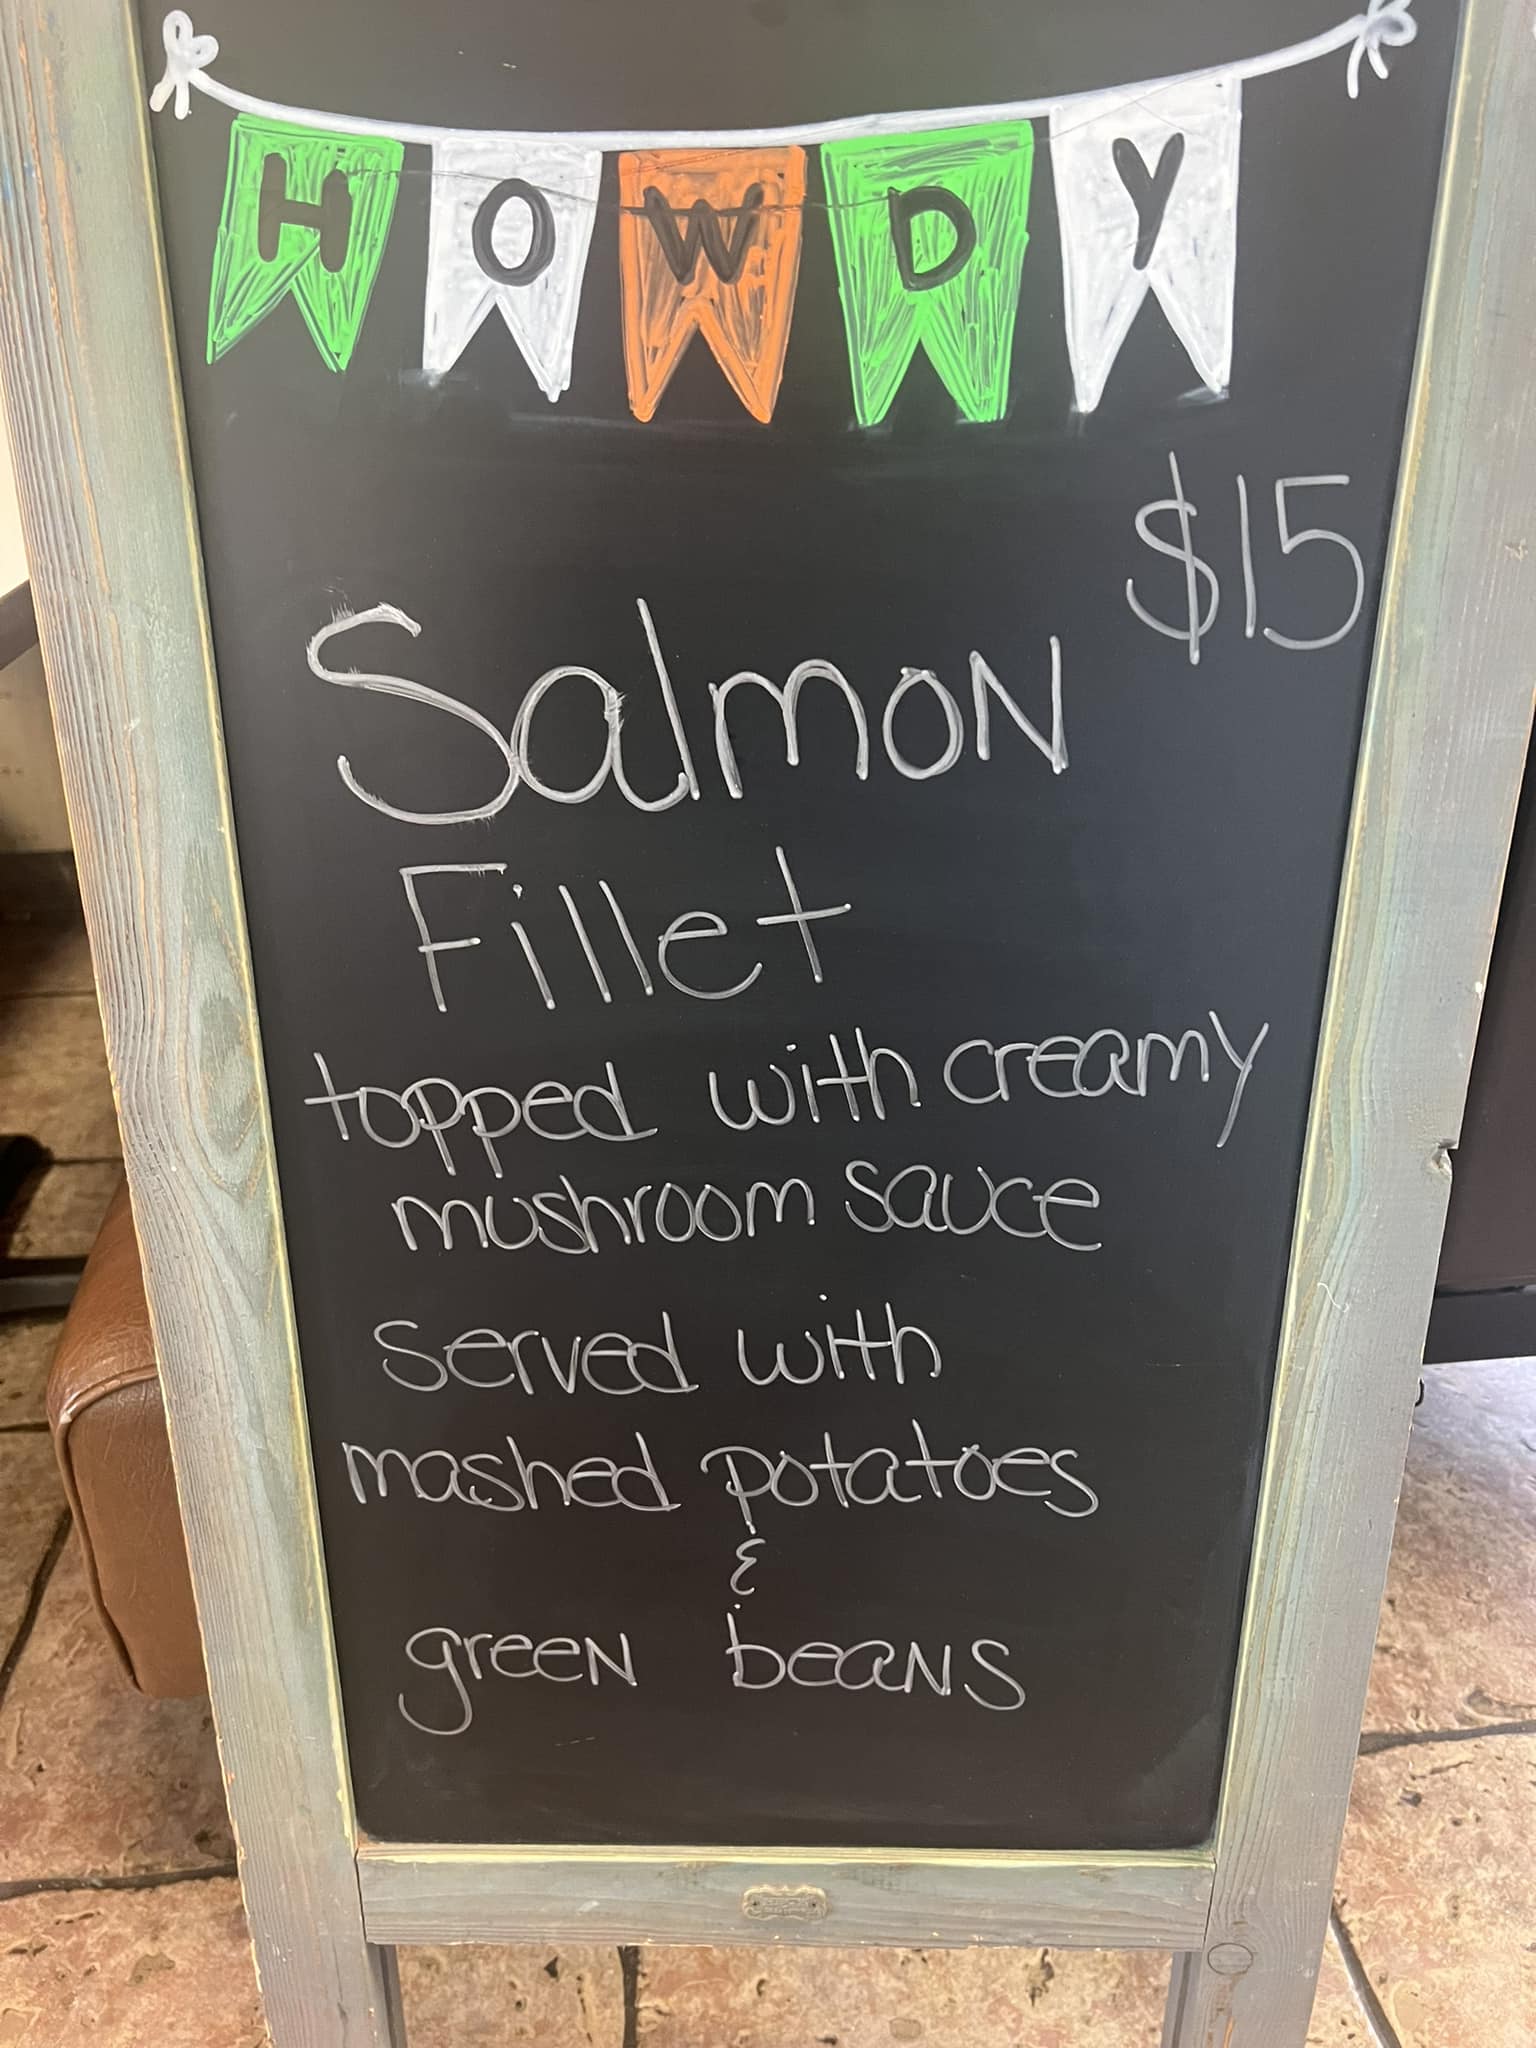 HOWDY
$15
Salmon
Fillet
topped with creamy
mushroom sauce
served with
mashed potatoes
&
green beans